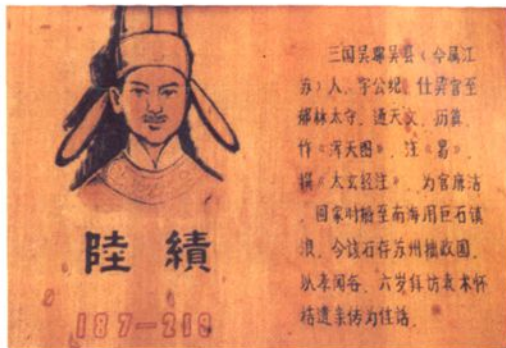 陸績
187—219
三国吴郡吴县（今属江
苏）人，字公纪，仕吴官至
郁林太守，通天文、历算，
作《浑天图》，注《易》，
撰《太玄经注》。为官廉洁
，回家时船至南海用巨石镇
浪，今该石存苏州拙政园，
以孝闻名，六岁拜访袁术怀
桔遗亲传为佳话。